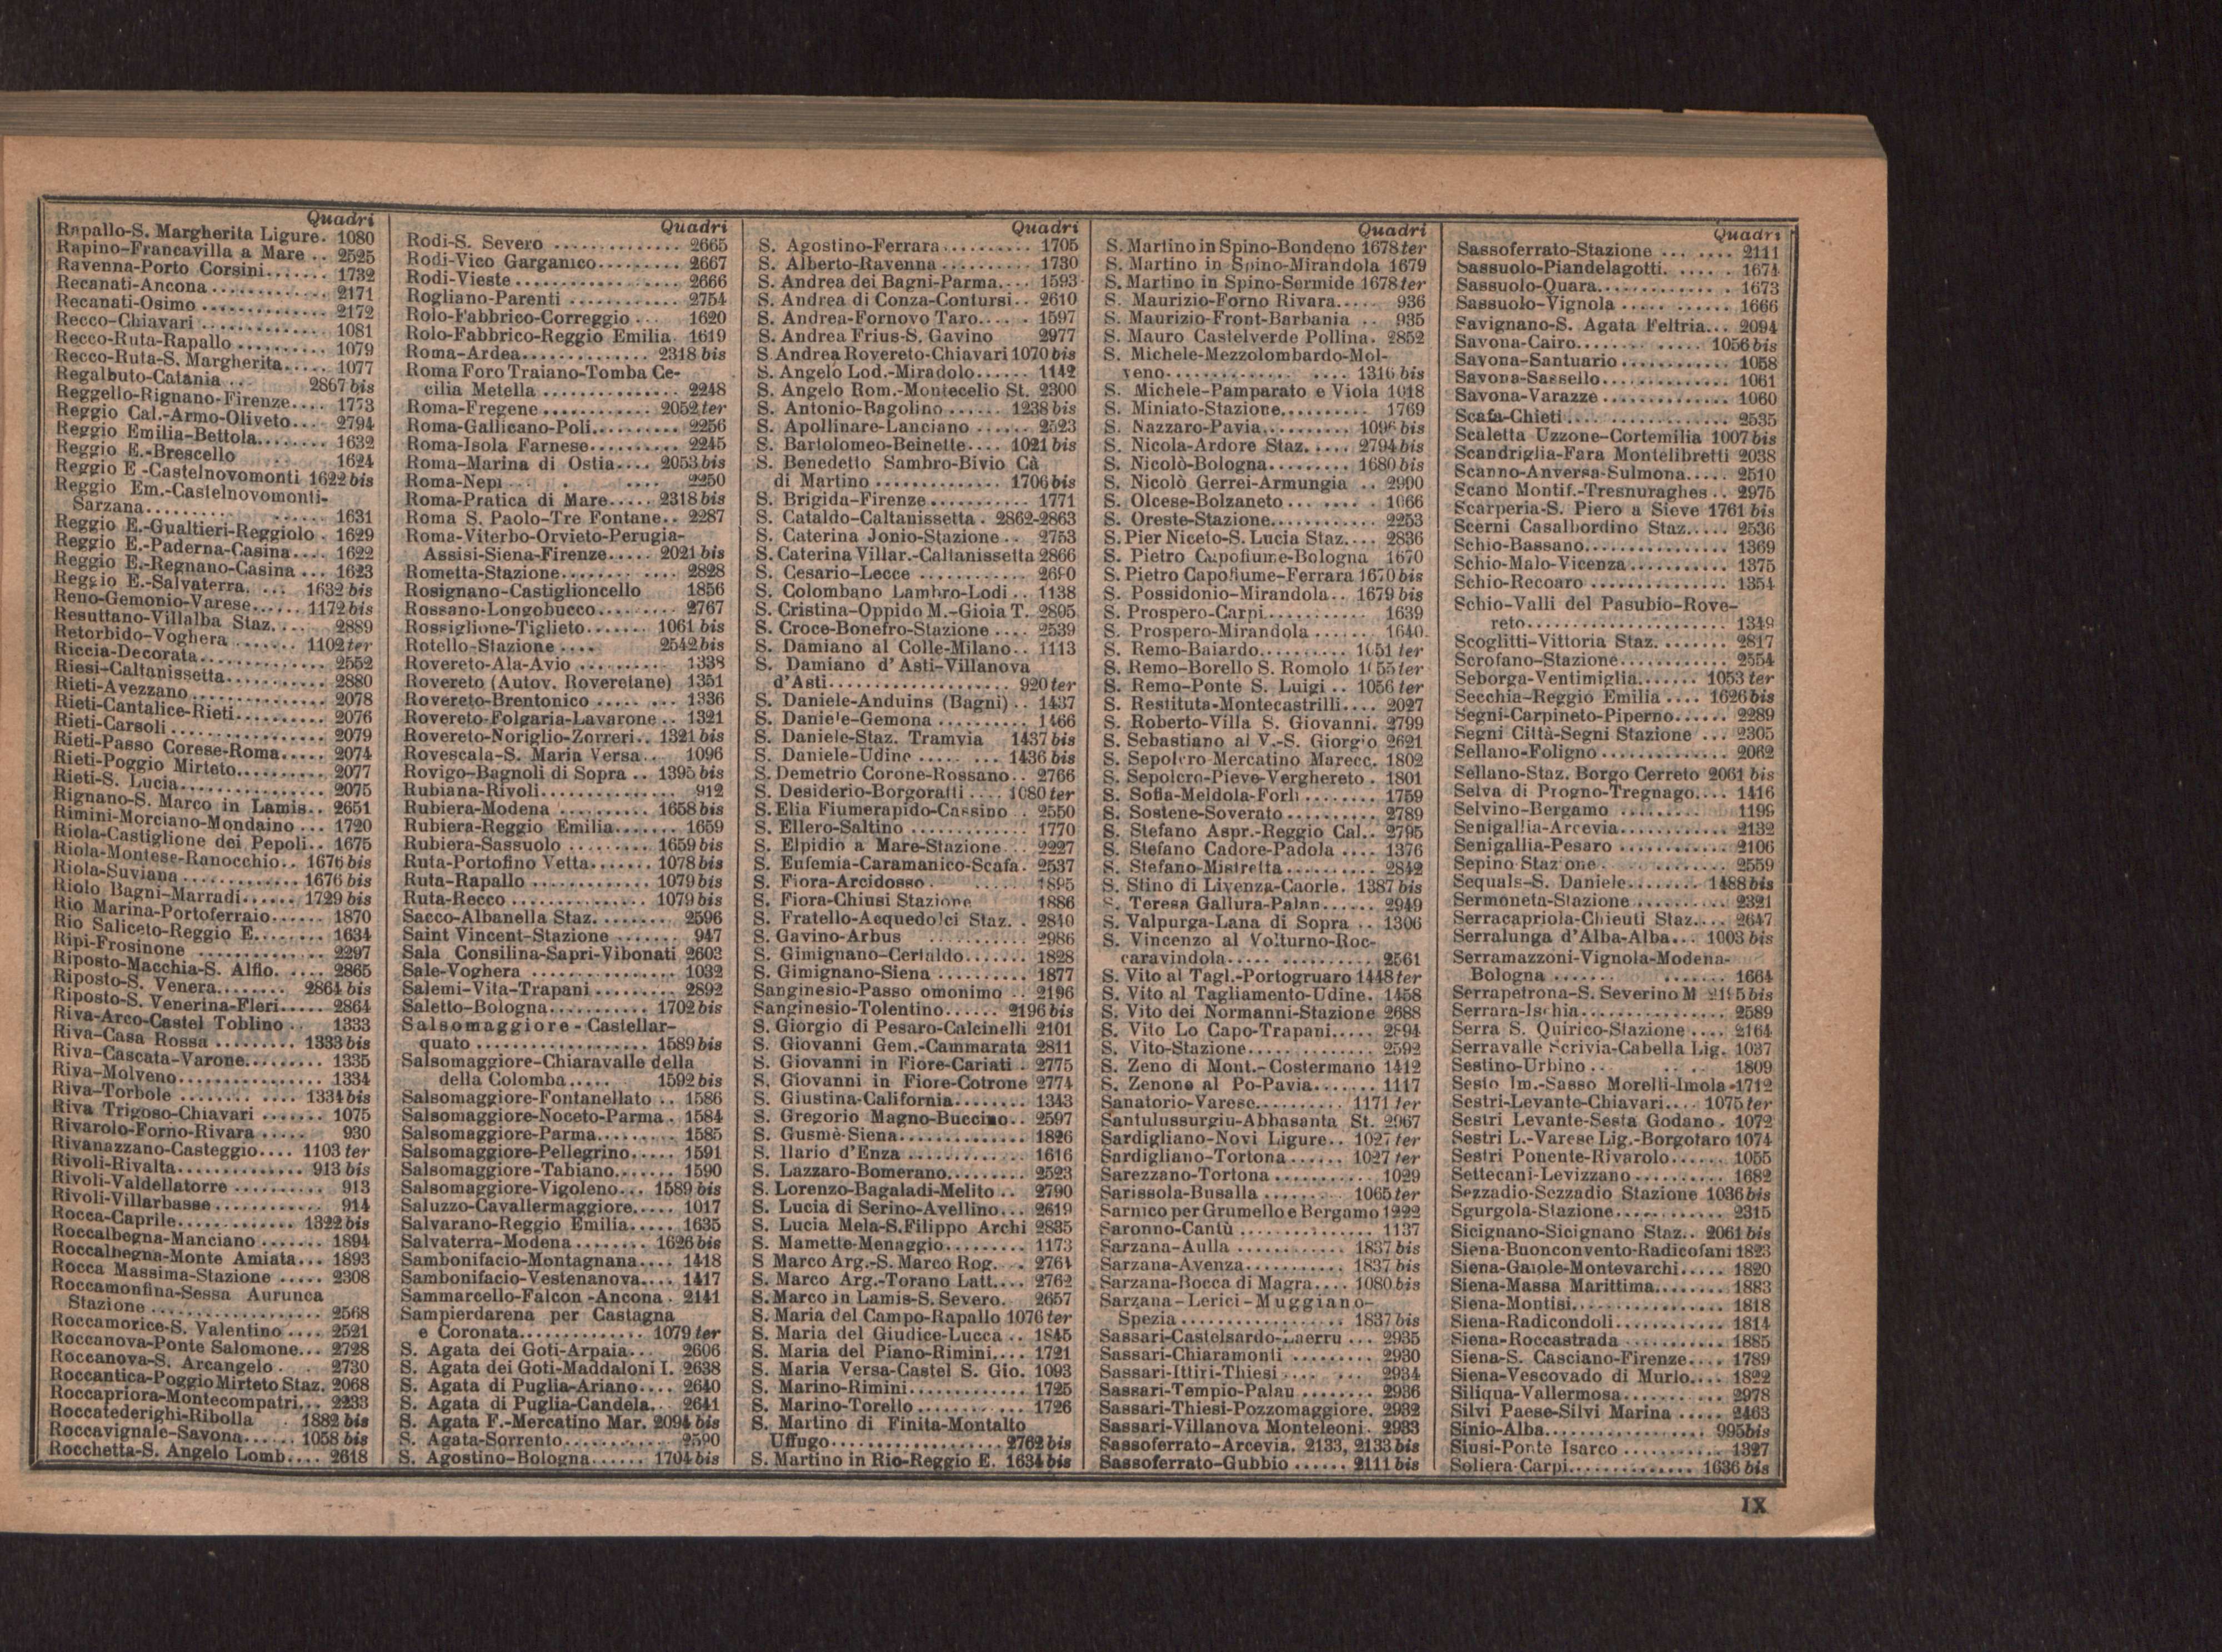 Quadri
Rapallo-S. Margherita Ligure. 1080
Rapino-Francavilla a Mare .. 2525
Ravenna-Porto Corsini....... 1732
Recanati-Ancona ............ 2171
Recanati-Osimo ............. 2172
Recco-Chiavari ............. 1081
Recco-Ruta-Rapallo ......... 1079
Recco-Ruta-S. Margherita..... 1077
Regalbuto-Catania ... 2867 bis
Reggello-Rignano-Firenze.... 1773
Reggio Cal.-Armo-Oliveto... 2794
Reggio Emilia-Bettola........ 1632
Reggio E.-Brescello 1624
Reggio E.-Castelnovomonti 1622 bis
Reggio Em.-Castelnovomonti-
Sarzana......... ..... 1631
Reggio E.-Gualtieri-Reggiolo . 1629
Reggio E.-Paderna-Casina.... 1622
Reggio E.-Regnano-Casina ... 1623
Reggio E.-Salvaterra. ... 1632 bis
Reno-Gemonio-Varese...... 1172 bis
Resuttano-Villalba Staz.... 2889
Retorbido-Voghera ....... 1102 ter
Riccia-Decorata............. 2552
Riesi-Caltanissetta........... 2880
Rieti-Avezzano .............. 2078
Rieti-Cantalice-Rieti.......... 2076
Rieti-Carsoli ................ 2079
Rieti-Passo Corese-Roma..... 2074
Rieti-Poggio Mirteto.......... 2077
Rieti-S. Lucia................ 2075
Rignano-S. Marco in Lamis.. 2651
Rimini-Morciano-Mondaino ... 1720
Riola-Castiglione dei Pepoli.. 1675
Riola-Montese-Ranocchio.. 1676 bis
Riola-Suviana ............. 1676 bis
Riolo Bagni-Marradi...... 1729 bis
Rio Marina-Portoferraio...... 1870
Rio Saliceto-Reggio E........ 1634
Ripi-Frosinone .............. 2297
Riposto-Macchia-S. Alfio. .... 2865
Riposto-S. Venera........ 2864 bis
Riposto-S. Venerina-Fleri..... 2864
Riva-Arco-Castel Toblino .. 1333
Riva-Casa Rossa ......... 1333 bis
Riva-Cascata-Varone......... 1335
Riva-Molveno................ 1334
Riva-Torbole ........ .... 1334 bis
Riva Trigoso-Chiavari ....... 1075
Rivarolo-Forno-Rivara ..... 930
Rivanazzano-Casteggio.... 1103 ter
Rivoli-Rivalta.............. 913 bis
Rivoli-Valdellatorre .......... 913
Rivoli-Villarbasse............ 914
Rocca-Caprile............. 1322 bis
Roccalbegna-Manciano ....... 1894
Roccalbegna-Monte Amiata... 1893
Rocca Massima-Stazione ..... 2308
Roccamonfina-Sessa Aurunca
Stazione .................. 2568
Roccamorice-S. Valentino .... 2521
Roccanova-Ponte Salomone... 2728
Roccanova-S. Arcangelo . . 2730
Roccantica-Poggio Mirteto Staz. 2068
Roccapriora-Montecompatri... 2233
Roccatederighi-Ribolla . 1882 bis
Roccavignale-Savona...... 1058 bis
Rocchetta-S. Angelo Lomb.... 2618
Quadri
Rodi-S. Severo ............. 2665
Rodi-Vico Garganico......... 2667
Rodi-Vieste ................. 2666
Rogliano-Parenti ............ 2754
Rolo-Fabbrico-Correggio ... 1620
Rolo-Fabbrico-Reggio Emilia. 1619
Roma-Ardea.............. 2318 bis
Roma Foro Traiano-Tomba Ce-
cilia Metella ............... 2248
Roma-Fregene ............ 2052 ter
Roma-Gallicano-Poli.......... 2256
Roma-Isola Farnese.......... 2245
Roma-Marina di Ostia.... 2053 bis
Roma-Nepi ... . .... 2250
Roma-Pratica di Mare..... 2318 bis
Roma S. Paolo-Tre Fontane.. 2287
Roma-Viterbo-Orvieto-Perugia-
Assisi-Siena-Firenze..... 2021 bis
Rometta-Stazione....... .... 2828
Rosignano-Castiglioncello 1856
Rossano-Longobucco......... 2767
Rossiglione-Tiglieto....... 1061 bis
Rotello-Stazione .... 2542 bis
Rovereto-Ala-Avio .......... 1338
Rovereto (Autov. Roveretane) 1351
Rovereto-Brentonico ..... ... 1336
Rovereto-Folgaria-Lavarone .. 1321
Rovereto-Noriglio-Zorreri.. 1321 bis
Rovescala-S. Maria Versa.. 1096
Rovigo-Bagnoli di Sopra .. 1395 bis
Rubiana-Rivoli............... 912
Rubiera-Modena .......... 1658 bis
Rubiera-Reggio Emilia....... 1659
Rubiera-Sassuolo ......... 1659 bis
Ruta-Portofino Vetta....... 1078 bis
Ruta-Rapallo ............. 1079 bis
Ruta-Recco ............... 1079 bis
Sacco-Albanella Staz. ........ 2596
Saint Vincent-Stazione ....... 947
Sala Consilina-Sapri-Vibonati 2603
Sale-Voghera ............... 1032
Salemi-Vita-Trapani ......... 2892
Saletto-Bologna........... 1702 bis
Salsomaggiore-Castellar-
quato ................... 1589 bis
Salsomaggiore-Chiaravalle della
della Colomba..... 1592 bis
Salsomaggiore-Fontanellato .. 1586
Salsomaggiore-Noceto-Parma . 1584
Salsomaggiore-Parma......... 1585
Salsomaggiore-Pellegrino..... 1591
Salsomaggiore-Tabiano....... 1590
Salsomaggiore-Vigoleno... 1589 bis
Saluzzo-Cavallermaggiore..... 1017
Salvarano-Reggio Emilia..... 1635
Salvaterra-Modena ........ 1626 bis
Sambonifacio-Montagnana.... 1418
Sambonifacio-Vestenanova.... 1417
Sammarcello-Falcon.-Ancona . 2141
Sampierdarena per Castagna
e Coronata............. 1079 ter
S. Agata dei Goti-Arpaia... 2606
S. Agata dei Goti-Maddaloni I. 2638
S. Agata di Puglia-Ariano.... 2640
S. Agata di Puglia-Candela... 2641
S. Agata F.-Mercatino Mar. 2094 bis
S. Agata-Sorrento............ 2590
S. Agostino-Bologna...... 1704 bis
Quadri
S. Agostino-Ferrara.......... 1705
S. Alberto-Ravenna .......... 1730
S. Andrea dei Bagni-Parma.... 1593
S. Andrea di Conza-Contursi.. 2610
S. Andrea-Fornovo Taro.... . 1597
S. Andrea Frius-S. Gavino 2977
S. Andrea Rovereto-Chiavari 1070 bis
S. Angelo Lod.-Miradolo...... 1142
S. Angelo Rom.-Montecelio St. 2300
S. Antonio-Bagolino ...... 1238 bis
S. Apollinare-Lanciano ...... 2523
S. Bartolomeo-Beinette.... 1021 bis
S. Benedetto Sambro-Bivio Cà
di Martino ............. 1706 bis
S. Brigida-Firenze ........... 1771
S. Cataldo-Caltanissetta . 2862-2863
S. Caterina Jonio-Stazione .. 2753
S. Caterina Villar.-Caltanissetta 2866
S. Cesario-Lecce ............ 2690
S. Colombano Lambro-Lodi .. 1138
S. Cristina-Oppido M.-Gioia T. 2805
S. Croce-Bonefro-Stazione .... 2539
S. Damiano al Colle-Milano.. 1113
S. Damiano d'Asti-Villanova
d'Asti................... 920 ter
S. Daniele-Anduins (Bagni) .. 1437
S. Daniele-Gemona .......... 1466
S. Daniele-Staz. Tramvia 1437 bis
S. Daniele-Udine ..... ... 1436 bis
S. Demetrio Corone-Rossano.. 2766
S. Desiderio-Borgoratti .... 1080 ter
S. Elia Fiumerapido-Cassino . 2550
S. Ellero-Saltino ............ 1770
S. Elpidio a Mare-Stazione... 2227
S. Eufemia-Caramanico-Scafa. 2537
S. Fiora-Arcidosso . ..... 1895
S. Fiora-Chiusi Stazione 1886
S. Fratello-Acquedolci Staz. . 2840
S. Gavino-Arbus ........... 2986
S. Gimignano-Certaldo....... 1828
S. Gimignano-Siena .......... 1877
Sanginesio-Passo omonimo .. 2196
Sanginesio-Tolentino...... 2196 bis
S. Giorgio di Pesaro-Calcinelli 2101
S. Giovanni Gem.-Cammarata 2811
S. Giovanni in Fiore-Cariati . 2775
S. Giovanni in Fiore-Cotrone 2774
S. Giustina-California........ 1343
S. Gregorio Magno-Buccino.. 2597
S. Gusmè-Siena.............. 1826
S. Ilario d'Enza ............. 1616
S. Lazzaro-Bomerano......... 2523
S. Lorenzo-Bagaladi-Melito .. 2790
S. Lucia di Serino-Avellino... 2619
S. Lucia Mela-S. Filippo Archi 2835
S. Mamette-Menaggio......... 1173
S Marco Arg.-S. Marco Rog. . 2761
S. Marco Arg.-Torano Latt.... 2762
S. Marco in Lamis-S. Severo. 2657
S. Maria del Campo-Rapallo 1076 ter
S. Maria del Giudice-Lucca .. 1845
S. Maria del Piano-Rimini.... 1721
S. Maria Versa-Castel S. Gio. 1093
S. Marino-Rimini............. 1725
S. Marino-Torello ............ 1726
S. Martino di Finita-Montalto
Uffugo................... 2762 bis
S. Martino in Rio-Reggio E. 1634 bis
Quadri
S. Martino in Spino-Bondeno 1678 ter
S. Martino in Spino-Mirandola 1679
S. Martino in Spino-Sermide 1678 ter
S. Maurizio-Forno Rivara..... 936
S. Maurizio-Front-Barbania .. 935
S. Mauro Castelverde Pollina. 2852
S. Michele-Mezzolombardo-Mol-
veno............. .... 1316 bis
S. Michele-Pamparato e Viola 1018
S. Miniato-Stazione.......... 1769
S. Nazzaro-Pavia.......... 1096 bis
S. Nicola-Ardore Staz. .... 2794 bis
S. Nicolò-Bologna......... 1680 bis
S. Nicolò Gerrei-Armungia .. 2990
S. Olcese-Bolzaneto ... .... . 1066
S. Oreste-Stazione............ 2253
S. Pier Niceto-S. Lucia Staz.... 2836
S. Pietro Capofiume-Bologna 1670
S. Pietro Capofiume-Ferrara 1670 bis
S. Possidonio-Mirandola.. 1679 bis
S. Prospero-Carpi............ 1639
S. Prospero-Mirandola ...... 1640
S. Remo-Baiardo.......... 1051 ter
S. Remo-Borello S. Romolo 1055 ter
S. Remo-Ponte S. Luigi .. 1056 ter
S. Restituta-Montecastrilli.... 2027
S. Roberto-Villa S. Giovanni. 2799
S. Sebastiano al V.-S. Giorgio 2621
S. Sepolcro Mercatino Marecc. 1802
S. Sepolcro-Pieve-Verghereto . 1801
S. Sofia-Meldola-Forlì ........ 1759
S. Sostene-Soverato .......... 2789
S. Stefano Aspr.-Reggio Cal.. 2795
S. Stefano Cadore-Padola .... 1376
S. Stefano-Mistretta.......... 2842
S. Stino di Livenza-Caorle. 1387 bis
S. Teresa Gallura-Palau...... 2949
S. Valpurga-Lana di Sopra .. 1306
S. Vincenzo al Volturno-Roc-
caravindola..... .......... 2561
S. Vito al Tagl.-Portogruaro 1448 ter
S. Vito al Tagliamento-Udine. 1458
S. Vito dei Normanni-Stazione 2688
S. Vito Lo Capo-Trapani..... 2894
S. Vito-Stazione.............. 2592
S. Zeno di Mont.-Costermano 1412
S. Zenone al Po-Pavia....... 1117
Sanatorio-Varese.......... 1171 ter
Santulussurgiu-Abbasanta St. 2967
Sardigliano-Novi Ligure.. 1027 ter
Sardigliano-Tortona ...... 1027 ter
Sarezzano-Tortona .......... 1029
Sarissola-Busalla ......... 1065 ter
Sarnico per Grumello e Bergamo 1222
Saronno-Cantù .............. 1137
Sarzana-Aulla ............ 1837 bis
Sarzana-Avenza........... 1837 bis
Sarzana-Bocca di Magra... 1080 bis
Sarzana-Lerici-Muggiano-
Spezia .................. 1837 bis
Sassari-Castelsardo-Laerru ... 2935
Sassari-Chiaramonti ......... 2930
Sassari-Ittiri-Thiesi .... ... 2934
Sassari-Tempio-Palau ........ 2936
Sassari-Thiesi-Pozzomaggiore. 2932
Sassari-Villanova Monteleoni. 2933
Sassoferrato-Arcevia. 2133, 2133 bis
Sassoferrato-Gubbio ...... 2111 bis
Quadri
Sassoferrato-Stazione ... .... 2111
Sassuolo-Piandelagotti. .... . 1674
Sassuolo-Quara............. . 1673
Sassuolo-Vignola ..... ...... 1666
Savignano-S. Agata Feltria... 2094
Savona-Cairo........ ..... 1056 bis
Savona-Santuario ............ 1058
Savona-Sassello.............. 1061
Savona-Varazze .............. 1060
Scafa-Chieti ... ............. 2535
Scaletta Uzzone-Cortemilia 1007 bis
Scandriglia-Fara Montelibretti 2038
Scanno-Anversa-Sulmona..... 2510
Scano Montif.-Tresnuraghes .. 2975
Scarperia-S. Piero a Sieve 1761 bis
Scerni Casalbordino Staz..... 2536
Schio-Bassano................ 1369
Schio-Malo-Vicenza........... 1375
Schio-Recoaro ............... 1354
Schio-Valli del Pasubio-Rove-
reto....................... 1349
Scoglitti-Vittoria Staz. ....... 2817
Scrofano-Stazione............ 2554
Seborga-Ventimiglia....... 1053 ter
Secchia-Reggio Emilia .... 1626 bis
Segni-Carpineto-Piperno...... 2289
Segni Città-Segni Stazione ... 2305
Sellano-Foligno .............. 2062
Sellano-Staz. Borgo Cerreto 2061 bis
Selva di Progno-Tregnago.... 1416
Selvino-Bergamo ......... 1199
Senigallia-Arcevia............ 2132
Senigallia-Pesaro ............ 2106
Sepino Stazione . ......... 2559
Sequals-S. Daniele........ 1488 bis
Sermoneta-Stazione .......... 2321
Serracapriola-Chieuti Staz.... 2647
Serralunga d'Alba-Alba... 1003 bis
Serramazzoni-Vignola-Modena-
Bologna ....... ....... 1664
Serrapetrona-S. Severino M 2195 bis
Serrara-Ischia................ 2589
Serra S. Quirico-Stazione .... 2164
Serravalle Scrivia-Cabella Lig. 1037
Sestino-Urbino .. .. . 1809
Sesto Im.-Sasso Morelli-Imola 1712
Sestri-Levante-Chiavari.... 1075 ter
Sestri Levante-Sesta Godano . 1072
Sestri L.-Varese Lig.-Borgotaro 1074
Sestri Ponente-Rivarolo...... 1055
Settecani-Levizzano .......... 1682
Sezzadio-Sezzadio Stazione 1036 bis
Sgurgola-Stazione............ 2315
Sicignano-Sicignano Staz.. 2061 bis
Siena-Buonconvento-Radicofani 1823
Siena-Gaiole-Montevarchi..... 1820
Siena-Massa Marittima........ 1883
Siena-Montisi................. 1818
Siena-Radicondoli............ 1814
Siena-Roccastrada ........... 1885
Siena-S. Casciano-Firenze.... 1789
Siena-Vescovado di Murlo.... 1822
Siliqua-Vallermosa............ 2978
Silvi Paese-Silvi Marina ..... 2463
Sinio-Alba.................. 995 bis
Siusi-Ponte Isarco ........... 1327
Soliera-Carpi.............. 1636 bis
IX